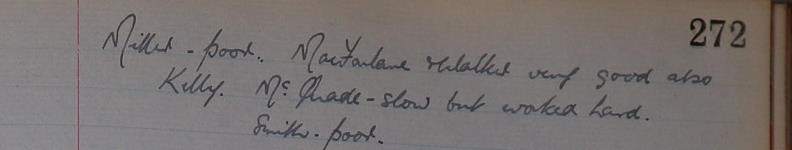 272
Miller - poor. MacFarlane & Hallett very good also
Kelly. McQuade - slow but worked hard.
Smith - poor.